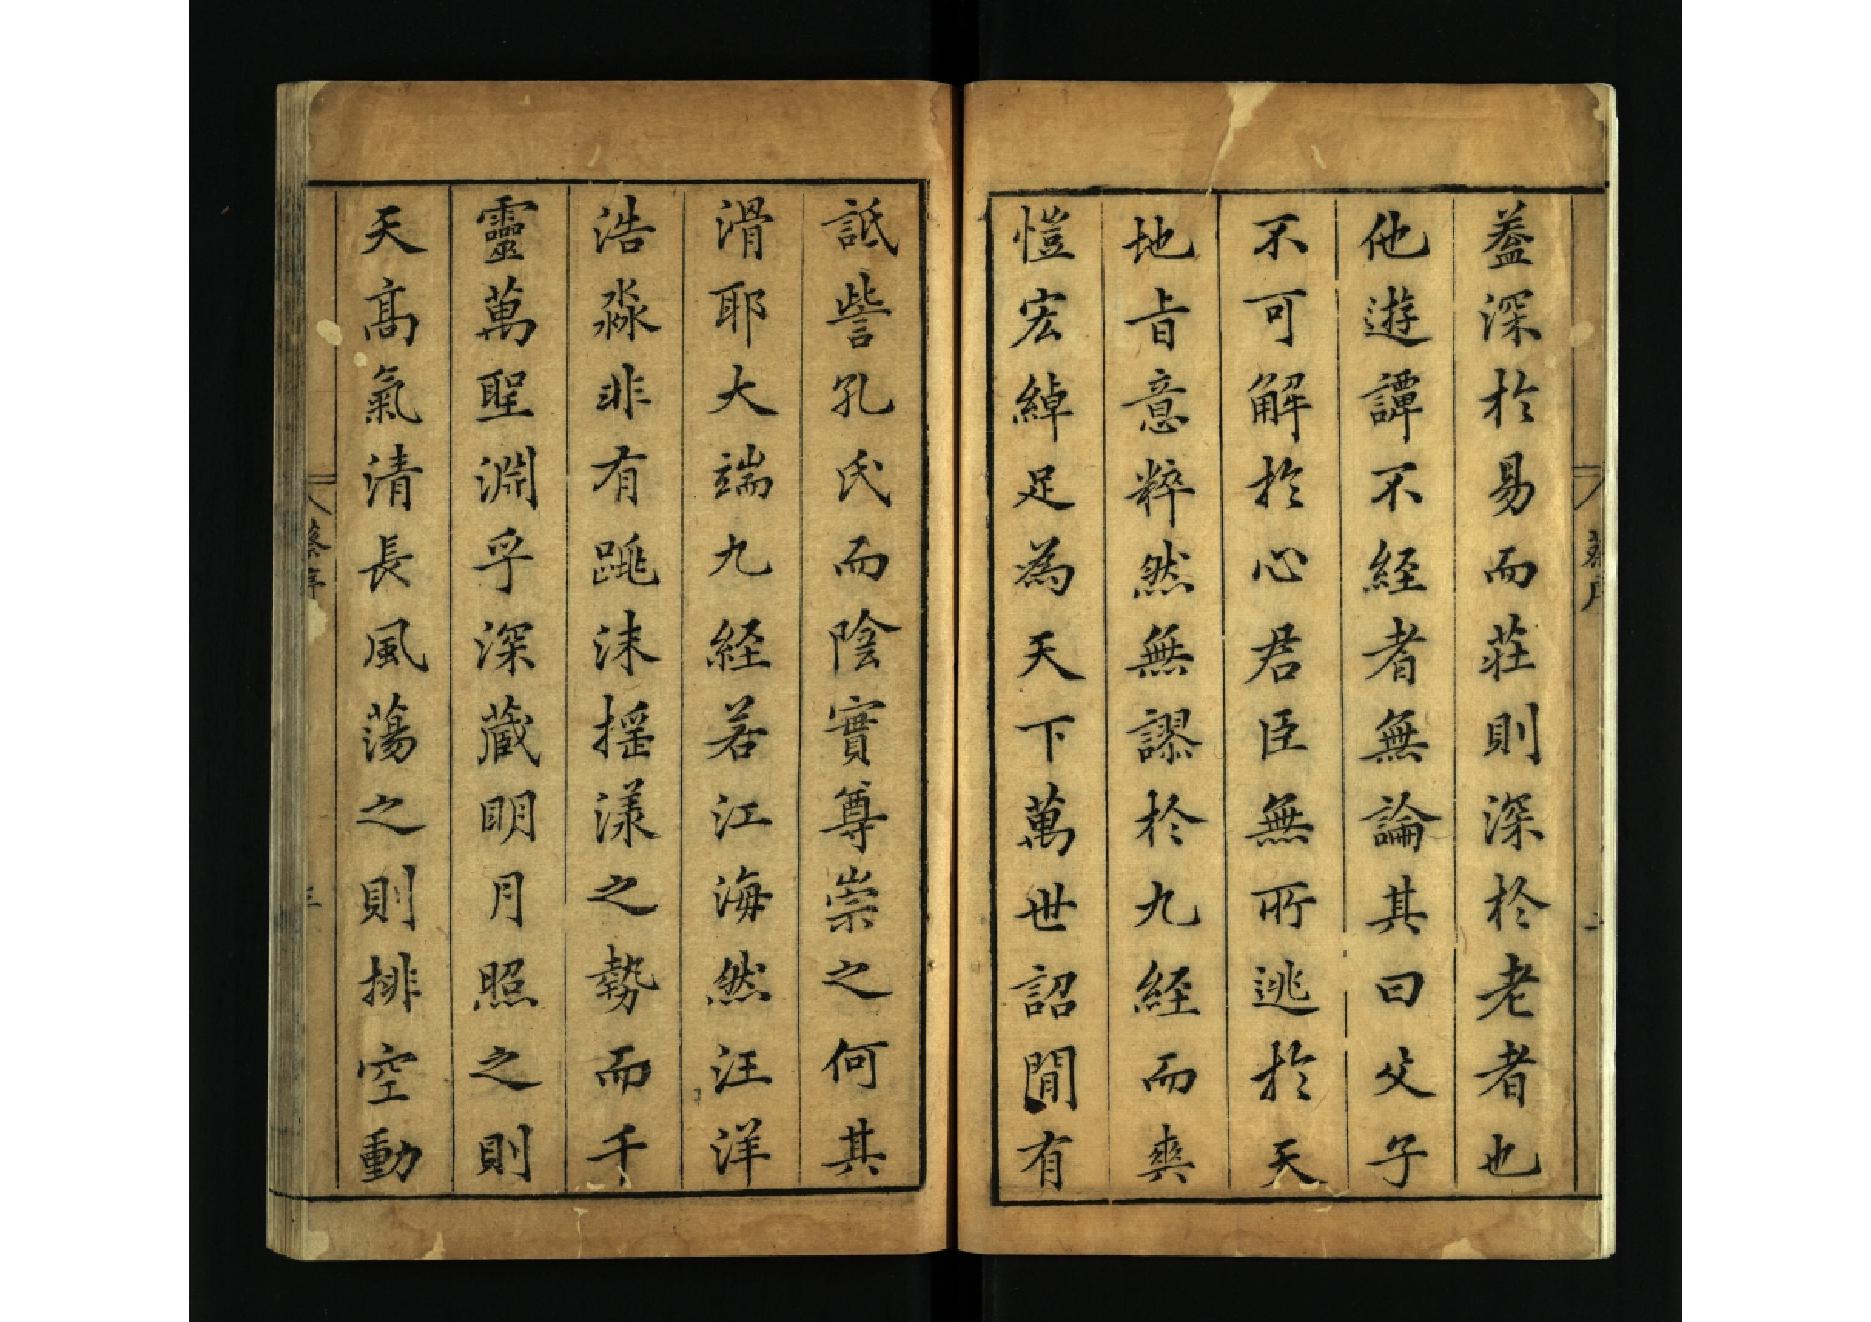 葢深於易而荘則深於老者也
他遊譚不経者無論其曰父子
不可解於心君臣無所逃於天
地㫖意粹然無謬於九経而爽
愷宏綽足為天下萬世詔間有
詆訾孔氏而陰實尊崇之何其
滑耶大端九経若江海然汪洋
浩淼非非有跳沫揺漾之勢而千
靈萬聖淵乎深蔵明月照之則
天髙氣清長風蕩之則排空動
蔡序